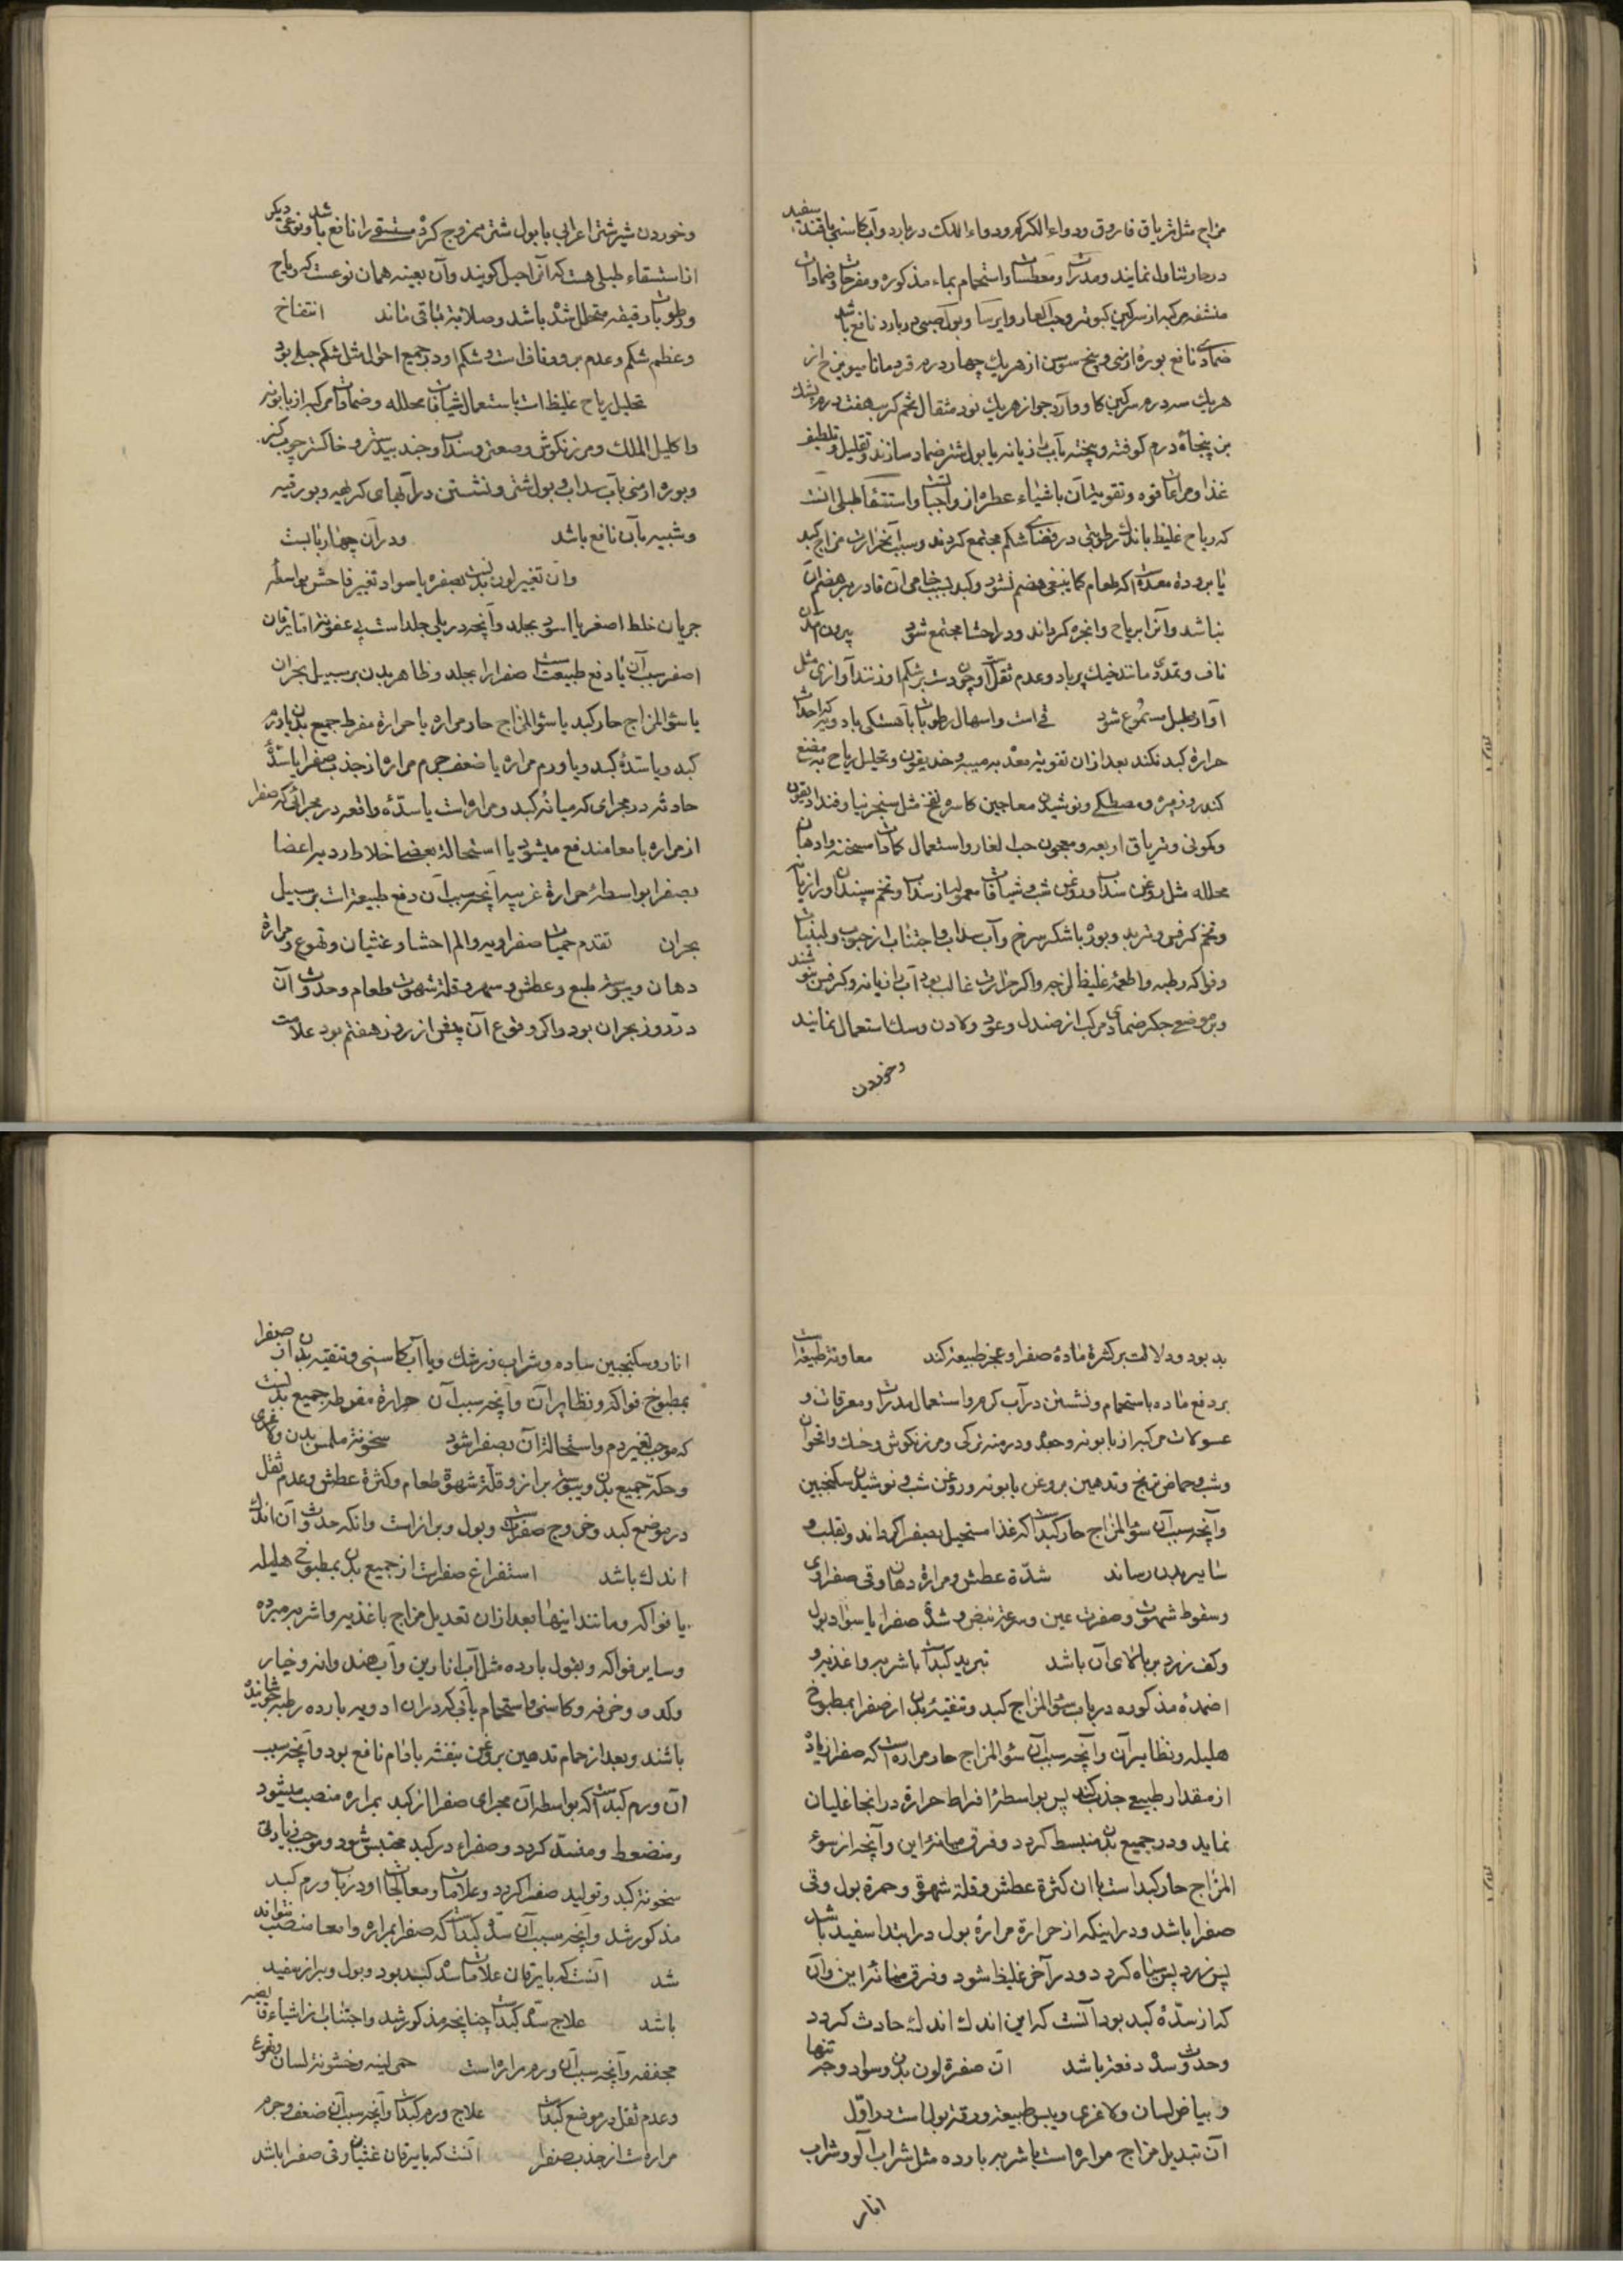 مزاج مثل تریاق فاروق و دواء الکرکم و دواء اللک در بارد و آب کاسنی با قند سفید
در حار تناول نمایند و مدرات و معطسات و استحمام بماء مذکوره و مفرحات و ضمادات
منشفه مرکبه از سرکین کبوتر و حب الغار و ایرسا و بول صبی در بارد نافع باشد
ضمادی نافع بوره ارمنی و بیخ سوسن از هریک چهار درم قردمانا میویزج از
هریک سه درم سرکین کاو و آرد جو از هریک نود مثقال تخم کرنب هفت درم پشک
بز پنجاه درم کوفته و بیخته بآب رازیانه یا بول شتر ضماد سازند و تقلیل و تلطیف
غذا و مراعات قوه و تقویت آن باشیاء عطره از واجبات و استسقا طبلی آنست
که ریاح غلیظ با اندک رطوبتی در فضای شکم مجتمع کردند و سبب آن حرارت مزاج کبد
یا برودة معده است که طعام کما ینبغی هضم نشود و کبد بسبب خامی آن قادر بر هضم آن
نباشد و آنرا بریاح و ابخره کرداند و در احشا مجتمع شود بیرون آمدن
ناف و تمدد مانند خیک پر باد و عدم ثقل است و چون دست بر شکم او زنند آوازی مثل
آواز طبل مسموع شود قی است و اسهال رطوبات بآهستکی بادویه که احداث
حرارة کبد نکند بعد از آن تقویة معده به میبه و خدیقون و تحلیل ریاح به مضغ
کندر و زیره و مصطکی و نوشیدن معاجین کاسر نفخ مثل سنجرنیا و فنداد یقون
و کمونی و تریاق اربعه و معجون حب الغار و استعمال کمادات مسخنه و ادهان
محلله مثل روغن سداب و روغن شب و شیافات معموله از سداب و تخم سپندان و رازیانه
و تخم کرفس و تربد و بوره با شکر سرخ و آب سداب و اجتناب از حبوب و لبنیات
و فواکه رطبه و اطعمه غلیظ لزجه و اکر حرارت غالب بود آب رازیانه و کرفس بنوشند
و بر موضع جکر ضمادی مرکب از صندل و عود و لادن و سک استعمال نمایند
و خوردن
و خوردن شیر شتر اعرابی با بول شتر ممزوج کرده مستسقی را نافع باشد و نوعی دیکر
از استسقاء طبلی هست که آنرا حبل کویند و آن بعینه همان نوعست که ریاح
و رطوبات رقیقه متحلل شده باشد و صلابة باقی ماند انتفاخ
و عظم شکم و عدم بروز ناف است و شکم او در جمیع احوال مثل شکم حبلی بود
تحلیل ریاح غلیظ است باستعمال شیافات محلله و ضمادات مرکب از بابونه
و اکلیل الملک و مرزنکوش و صعتر و سداب و جند بیدستر و خاکستر چوب کز
و بوره ارمنی بآب سداب و بول شتر و نشستن در آبهای کبریتیه و بورقیه
و شبیه بآن نافع باشد و در آن چهار بابست
و آن تغییر لون بدنست بصفره یا سواد تغییر فاحش بواسطه
جریان خلط اصفر یا اسود بجلد و آنچه در یلی جلد است بی عفونة اما یرقان
اصفر سبب آن یا دفع طبیعت است صفرا را بجلد و ظاهر بدن بر سبیل بحران
یا سؤ المزاج حار کبد یا سؤ المزاج حار مراره یا حرارة مفرط جمیع بدن یا ورم
کبد و یا سدهٔ کبد و یا ورم مراره یا ضعف جرم مراره از جذب صفرا یا سدهٔ
حادثه در مجرای که میانهٔ کبد و مراره است یا سدّهٔ واقعه در مجرائی که صفرا
از مراره بامعا مندفع میشود یا استحالة بعضی اخلاط ردیه اعضا
بصفرا بواسطهٔ حرارة غریبه آنچه سبب آن دفع طبیعة است بر سبیل
بحران تقدم حمیات صفراویه و الم احشا و غثیان و تهوع و مرارة
دهان و یبوسة طبع و عطش و سهر و قلة شهوت طعام و حدوث آن
در روز بحران بود و اکر وقوع آن پیش از روز هفتم بود علامت
بد بود و دلالت بر کثرة مادهٔ صفرا و عجز طبیعة کند معاونة طبیعة است
بر دفع ماده باستحمام و نشستن در آب کرم و استعمال مدرات و معرقات و
غسولات مرکبه از بابونه و جعده و درمنه ترکی و مرزنکوش و خسک و اقحوان
و شب و حماض ترنج و تدهین بروغن بابونه و روغن شب و نوشیدن سکنجبین
و آنچه سبب آن سؤ المزاج حار کبد است که غذا مستحیل بصفرا کرداند و بقلب و
سایر بدن رساند شدّة عطش و مرارة دهان و قی صفراوی
و سقوط شهوت و صفرت عین و سرعة نبض و شدة صفرا یا سواد بول
و کف زرد بر بالای آن باشد تبرید کبد است باشربه و اغذیه و
اضمدهٔ مذکوره در باب سؤ المزاج کبد و تنقیهٔ بدن از صفرا بمطبوخ
هلیله و نظایر آن و آنچه سبب آن سؤ المزاج حار مراره است که صفرا زیاده
از مقدار طبیعی جذب کند پس بواسطهٔ افراط حرارة در آنجا غلیان
نماید و در جمیع بدن منبسط کردد و فرق میانهٔ این و آنچه از سوء
المزاج حار کبد است با آن کثرة عطش و قلة شهوة و حمرة بول و قی
صفرا باشد و در اینکه از حرارة مراره بول در ابتدا سفید باشد
پس زرد پس سیاه کردد و در آخر غلیظ شود و فرق میانهٔ این و آن
که از سدّهٔ کبد بود آنست که این اندک اندک حادث کردد
و حدوث سده دفعة باشد آن صفرة لون بدن و سواد وجه تنها
و بیاض لسان و لاغری و یبس طبیعة و رقة بول است در اوّل
آن تبدیل مزاج مراره است باشربه بارده مثل شراب آلو و شراب
انار
انار و سکنجبین ساده و شراب زرشک و با آب کاسنی و تنقیه بدن از صفرا
بمطبوخ فواکه و نظایر آن و آنچه سبب آن حرارة مفرطه جمیع بدنست
که موجب تغییر دم و استحالة آن بصفرا شود سخونة ملمس بدن و لاغری
و حکّة جمیع بدن و یبوسة براز و قلّة شهوة طعام و کثرة عطش و عدم ثقل
در موضع کبد و خروج صفرا و بول و براز است و آنکه حدوث آن اندک
اندک باشد استفراغ صفراست از جمیع بدن بمطبوخ هلیله
یا فواکه و مانند اینها بعد از آن تعدیل مزاج باغذیه و اشربه مبرده
و سایر فواکه و بقول بارده مثل آب انارین و آب هندوانه و خیار
و کدو و خرفه و کاسنی و استحمام بآبی که در آن ادویه بارده رطبه جوشانیده
باشند و بعد از حمام تدهین بروغن بنفشه بادام نافع بود و آنچه سبب
آن ورم کبد است که بواسطهٔ آن مجرای صفرا از کبد بمراره منصب میشود
و منضغط و منسد کردد و صفراء در کبد محتبس شود و موجب زیادتی
سخونة کبد و تولید صفرا کردد و علامات و معالجات او در باب ورم کبد
مذکور شد و آنچه سبب آن سدّهٔ کبد است که صفرا بمراره و امعا منصب نتواند
شد آنست که با یرقان علامات سدهٔ کبد بود و بول و براز سفید
باشد علاج سدهٔ کبد است چنانچه مذکور شد و اجتناب از اشیاء قابضه
مجففه و آنچه سبب آن ورم مراره است حمی لینه و خشونة لسان و تهوع
و عدم ثقل در موضع کبد است علاج ورم کبد است و آنچه سبب آن ضعف جرم
مراره است از جذب صفرا آنست که با یرقان غثیان و قی صفرا باشد